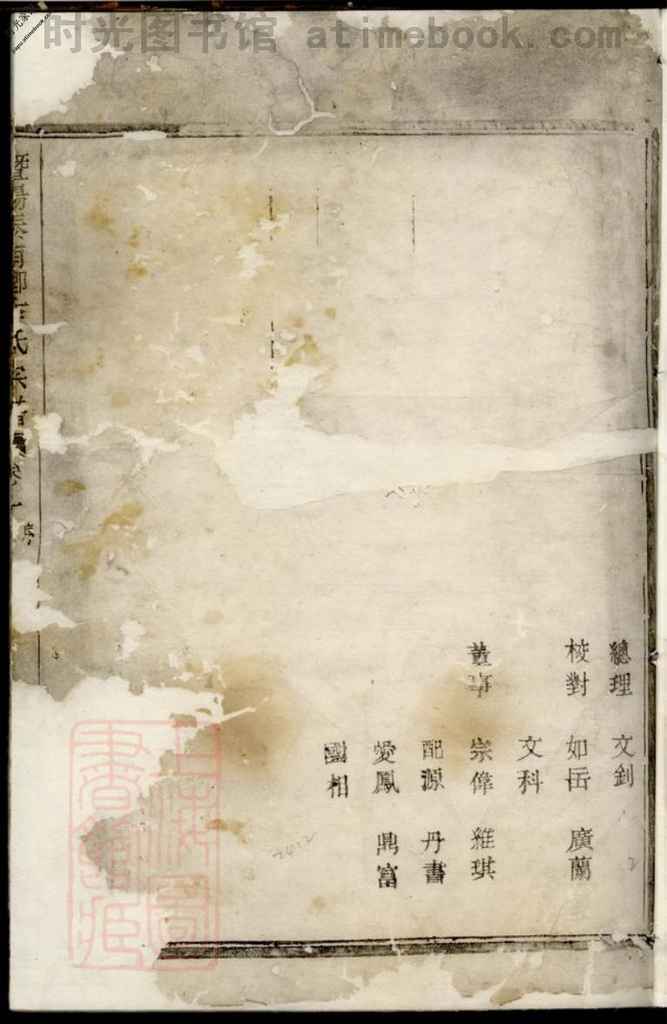 时光图书馆 atimebook.com
總理 文釗
校對 如岳 廣蘭
文科
董事 宗偉 維琪
配源 丹書
愛鳳 鼎富
國相
暨陽 南 氏宗 卷
2612